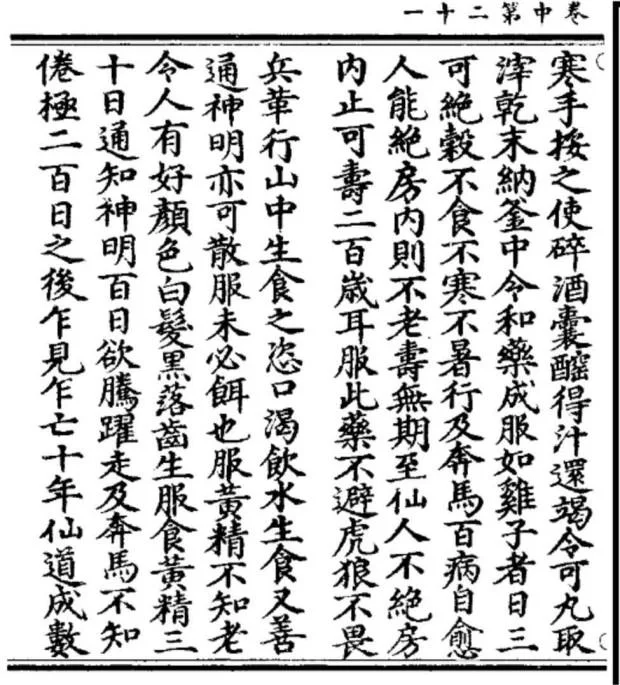 卷中第二十一
寒手挼之使碎酒囊醡得汁還竭令可丸取
滓乾末納釜中令和藥成服如雞子者日三
可絶穀不食不寒不暑行及奔馬百病自愈
人能絶房内則不老壽無期至仙人不絶房
内止可壽二百歳耳服此藥不避虎狼不畏
兵革行山中生食之恣口渴飲水生食又善
通神明亦可散服未必餌也服黄精不知老
令人有好顔色白髮黑落齒生服食黄精三
十日通知神明百日欲騰躍走及奔馬不知
倦極二百日之後乍見乍亡十年仙道成數